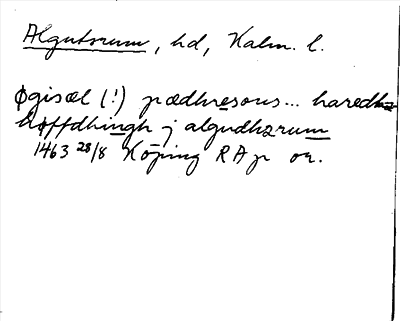 Algutsrum, hd, Kalm. l.
Øgisæl (!) pædhresons... haredhz
høffdhingh j algudhzrum
1463 28/8 Köping RAp or.